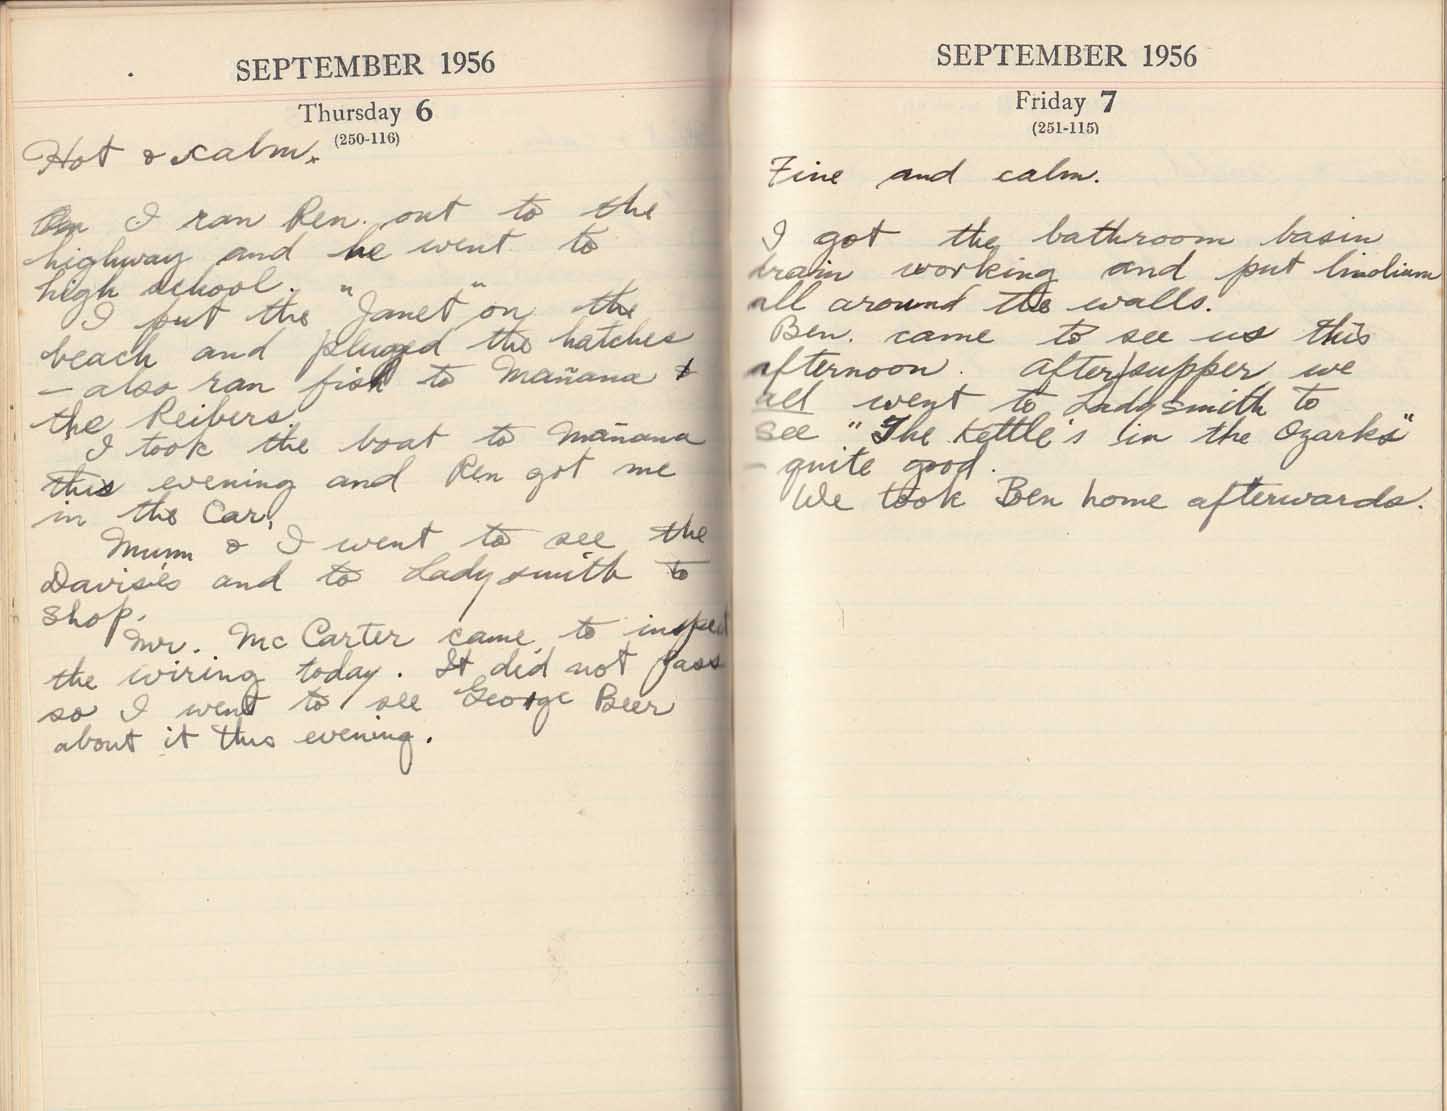 SEPTEMBER 1956
Thursday 6
(250-116)
Hot & calm.
I ran Ren. out to the
highway and he went to
high school.
I put the "Janet" on the
beach and pluged the hatches
— also ran fish to Mañana &
the Reibers.
I took the boat to Mañana
this evening and Ren got me
in the Car.
Mum & I went to see the
Davises and to Ladysmith to
shop.
Mr. McCarter came to inspect
the wiring today. It did not pass
so I went to see George Beer
about it this evening.
SEPTEMBER 1956
Friday 7
(251-115)
Fine and calm.
I got the bathroom basin
drain working and put linolium
all around the walls.
Ben. came to see us this
afternoon. After supper we
all went to Ladysmith to
see "The Kettle's in the Ozarks"
— quite good.
We took Ben home afterwards.